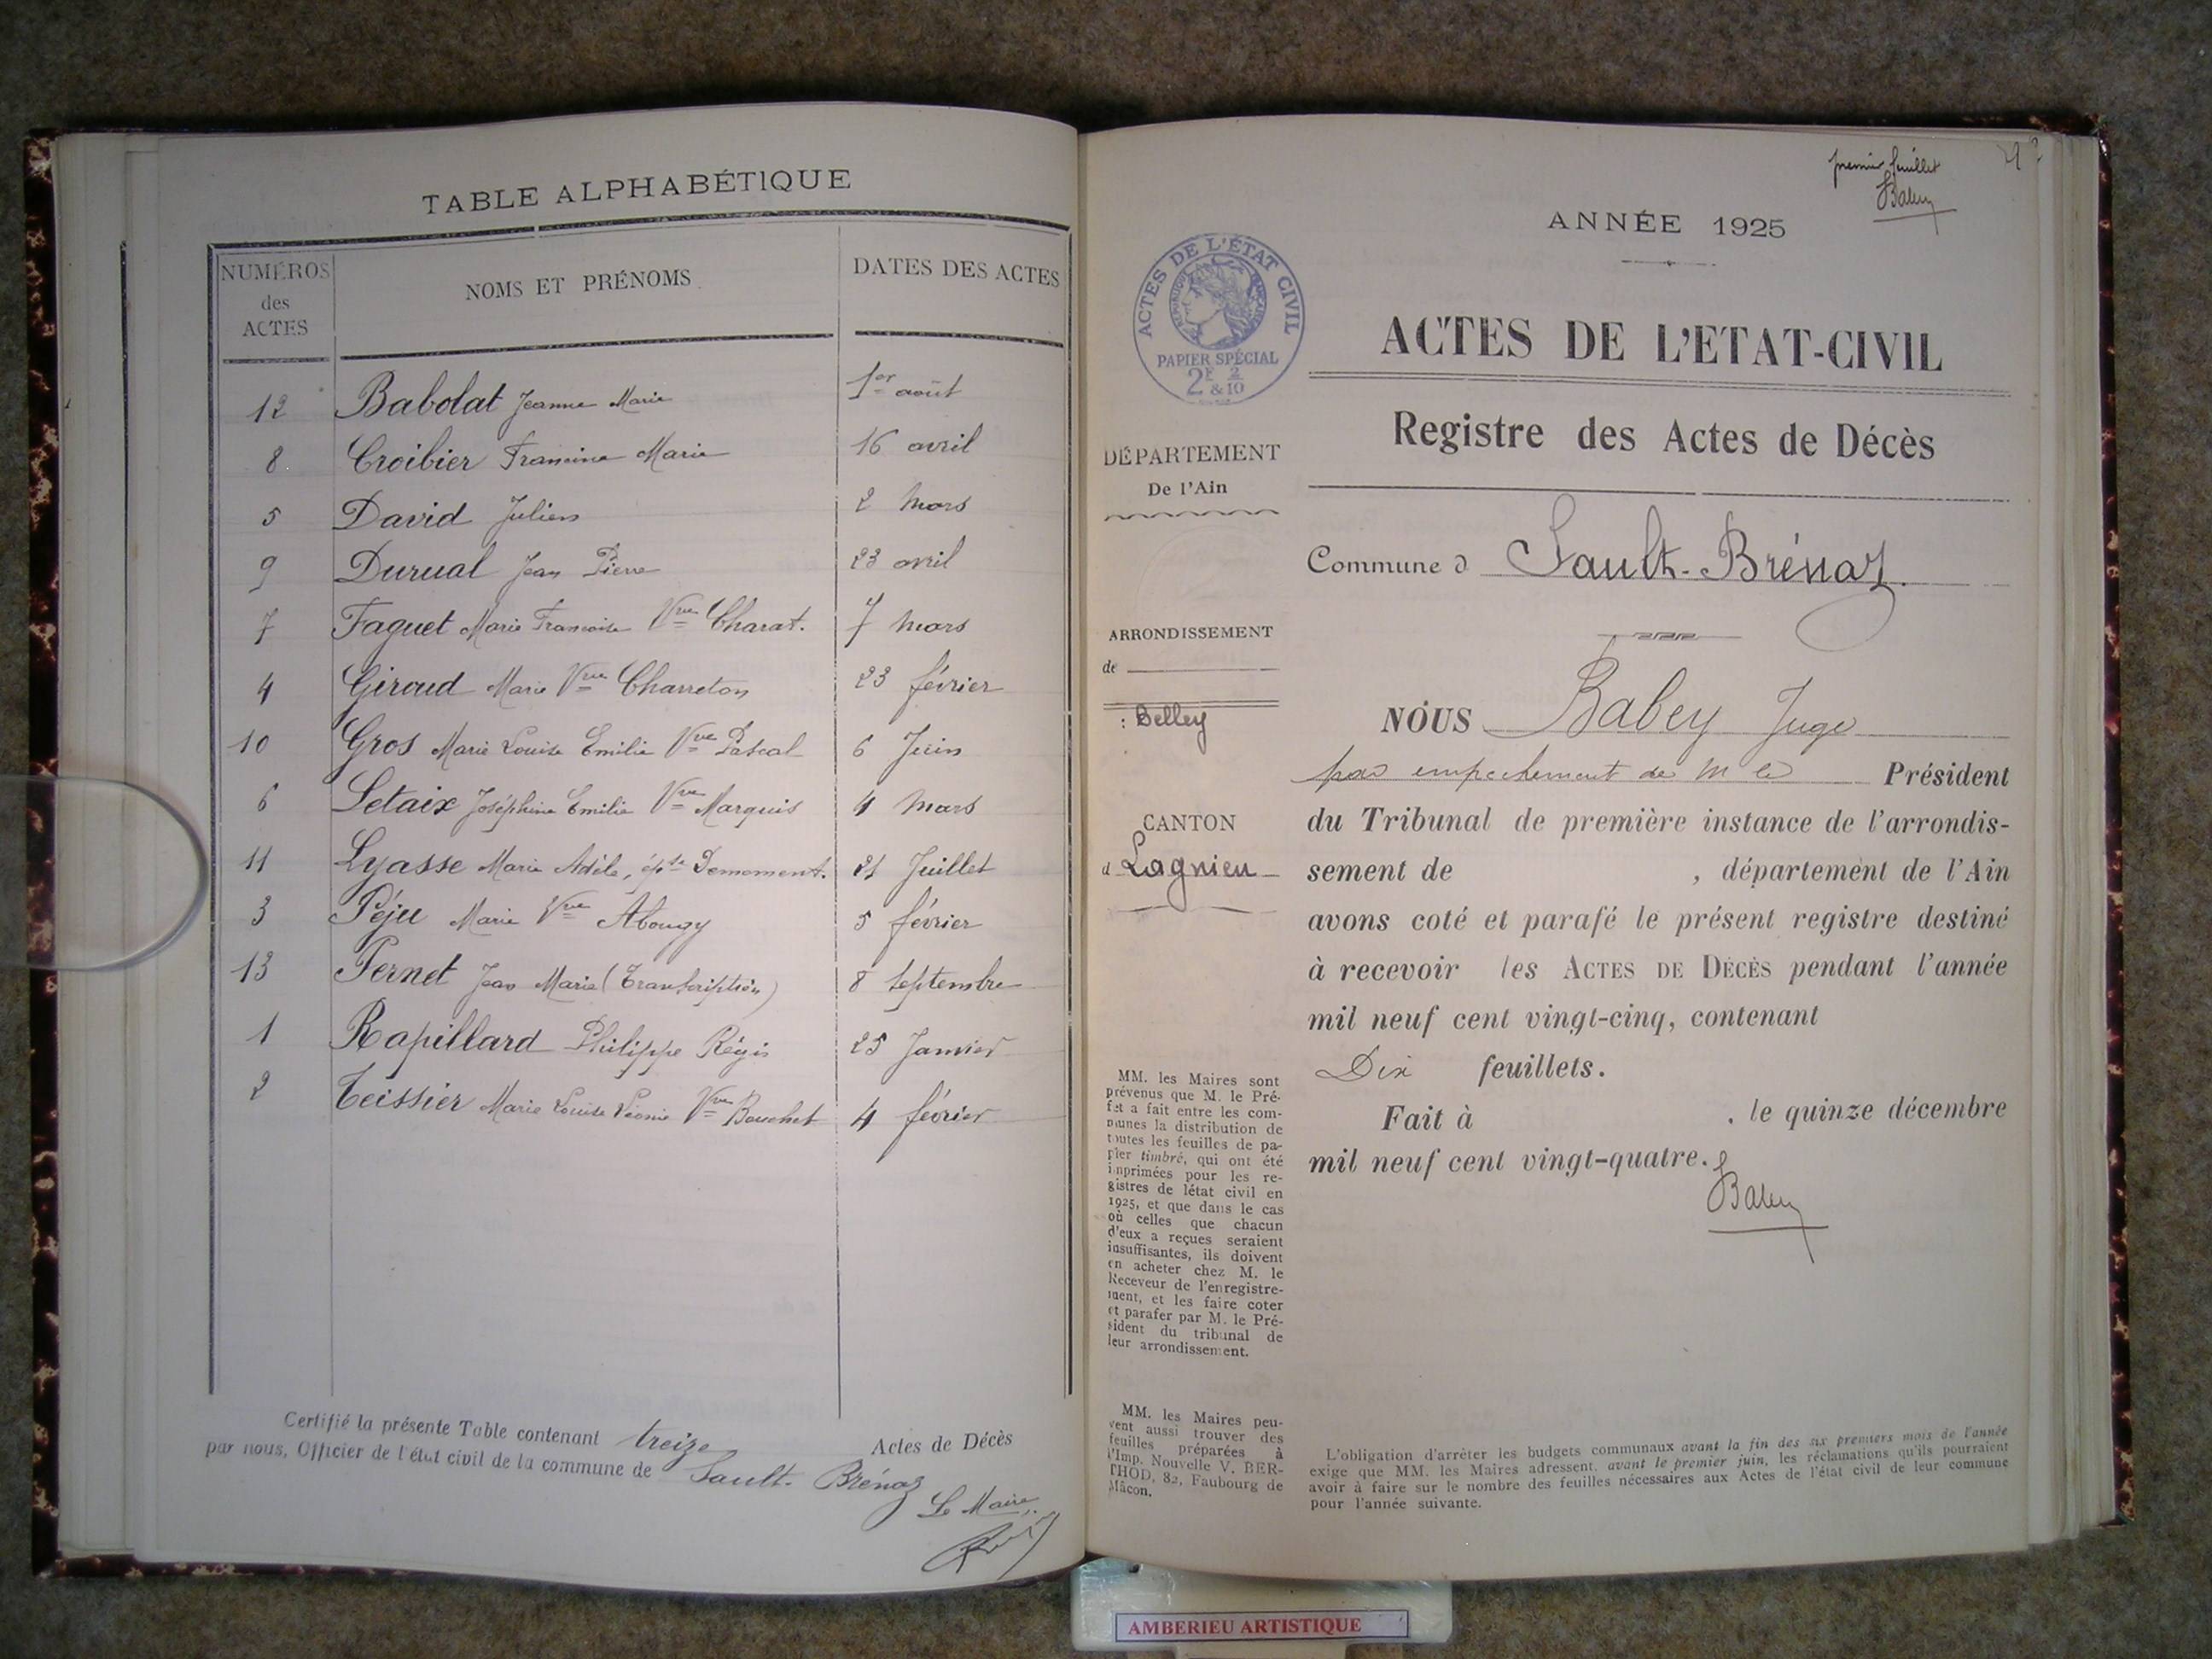 TABLE ALPHABÉTIQUE
NUMÉROS des ACTES NOMS ET PRÉNOMS DATES DES ACTES
12 Babolat Jeanne Marie 1er août
8 Croibier Francine Marie 16 avril
5 David Julien 2 Mars
9 Durual Jean Pierre 23 avril
7 Faguet Marie Francoise Vve Charat. 7 Mars
4 Giroud Marie Vve Charreton 23 février
10 Gros Marie Louise Emilie Vve Pascal 6 Juin
6 Letaix Joséphine Emilie Vve Marquis 4 Mars
11 Lyasse Marie Adèle, épse Demoment. 21 Juillet
3 Péju Marie Vve Abougy 5 février
13 Pernet Jean Marie (Transcription) 8 Septembre
1 Rapillard Philippe Régis 25 Janvier
2 Teissier Marie Louise Léonie Vve Bouchet 4 février
Certifié la présente Table contenant treize Actes de Décès
par nous, Officier de l'état civil de la commune de Sault-Brénaz
Le Maire
premier feuillet
Babey
ANNÉE 1925
ACTES DE L'ÉTAT CIVIL
RÉPUBLIQUE FRANÇAISE
PAPIER SPÉCIAL
2F & 2/10
ACTES DE L'ETAT-CIVIL
Registre des Actes de Décès
DÉPARTEMENT
De l'Ain
Commune d Sault-Brénaz.
ARRONDISSEMENT
de
: Belley
CANTON
d Lagnieu
NOUS Babey Juge
par empechement de M le Président
du Tribunal de première instance de l'arrondis-
sement de , département de l'Ain
avons coté et parafé le présent registre destiné
à recevoir les ACTES DE DÉCÈS pendant l'année
mil neuf cent vingt-cinq, contenant
Dix feuillets.
Fait à , le quinze décembre
mil neuf cent vingt-quatre.
Babey
MM. les Maires sont
prévenus que M. le Pré-
fet a fait entre les com-
munes la distribution de
toutes les feuilles de pa-
pier timbré, qui ont été
imprimées pour les re-
gistres de létat civil en
1925, et que dans le cas
où celles que chacun
d'eux a reçues seraient
insuffisantes, ils doivent
en acheter chez M. le
Receveur de l'enregistre-
ment, et les faire coter
et parafer par M. le Pré-
sident du tribunal de
leur arrondissement.
MM. les Maires peu-
vent aussi trouver des
feuilles préparées à
l'Imp. Nouvelle V. BER-
THOD, 82, Faubourg de
Mâcon.
L'obligation d'arrêter les budgets communaux avant la fin des six premiers mois de l'année
exige que MM. les Maires adressent, avant le premier juin, les réclamations qu'ils pourraient
avoir à faire sur le nombre des feuilles nécessaires aux Actes de l'état civil de leur commune
pour l'année suivante.
AMBERIEU ARTISTIQUE